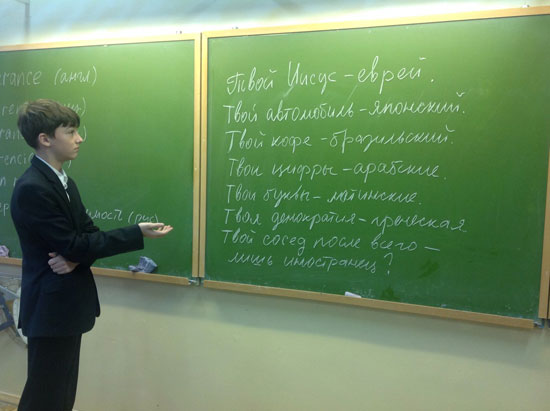 erance (англ)
Твой Иисус – еврей.
Твой автомобиль – японский.
Твой кофе – бразильский.
Твои цифры – арабские.
Твои буквы – латинские.
Твоя демократия – греческая
Твой сосед после всего –
лишь иностранец?